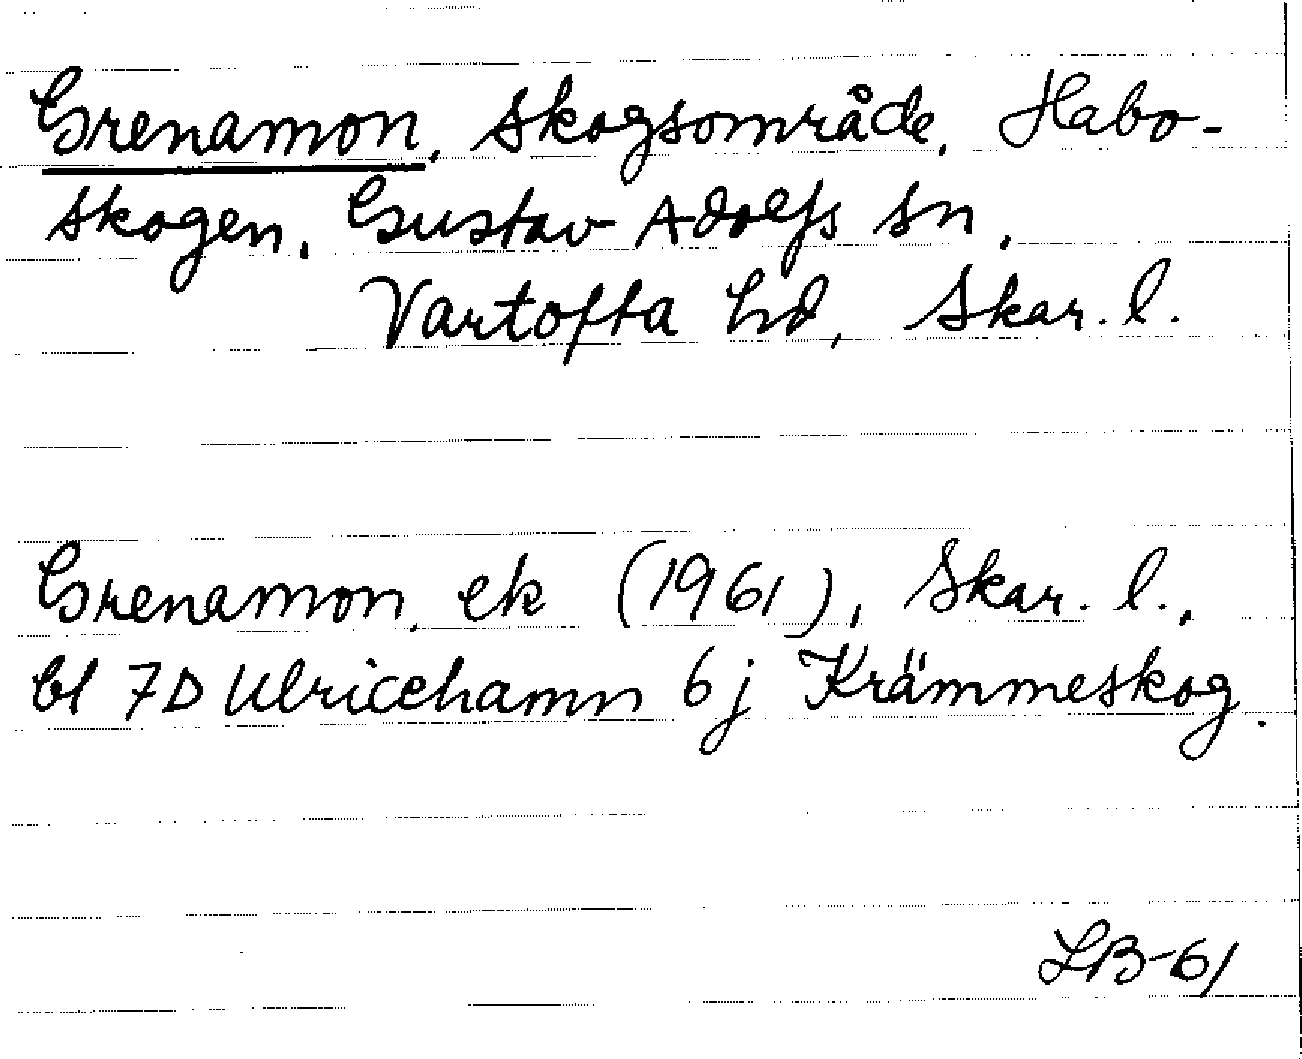 Grenamon, skogsområde, Habo-
skogen, Gustav Adolfs sn,
Vartofta hd, Skar. l.
Grenamon, ek (1961), Skar. l.,
bl 7D Ulricehamn 6j Krämmeskog.
LB-61